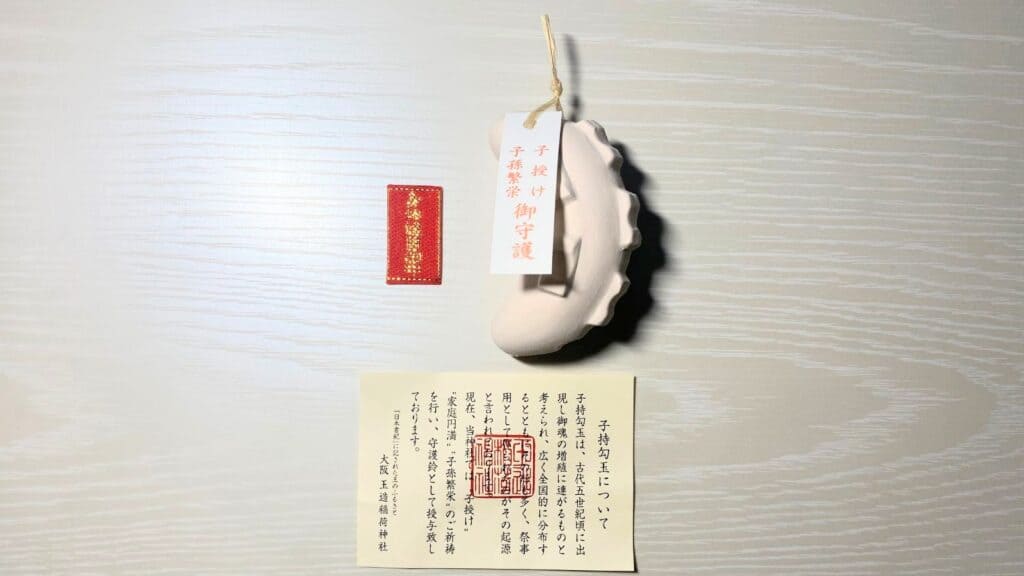 子授け
子孫繁栄
御守護
子持勾玉について
子持勾玉は、古代五世紀頃に出
現し御魂の増殖に連がるものと
考えられ、広く全国的に分布す
るとともに 多く、祭事
用として がその起源
と言われ
現在、当神社では"子授け"
"家庭円満" "子孫繁栄"のご祈祷
を行い、守護鈴として授与致し
ております。
「日本書紀」に記された玉のふるさと
大阪 玉造稲荷神社